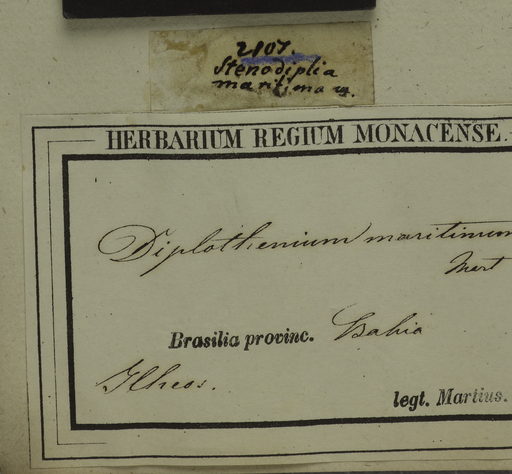 2107.
Stenodiplia
maritima
HERBARIUM REGIUM MONACENSE.
Diplothenium maritimum
Mart
Brasilia provinc. Bahia
Ilheos.
legt. Martius.